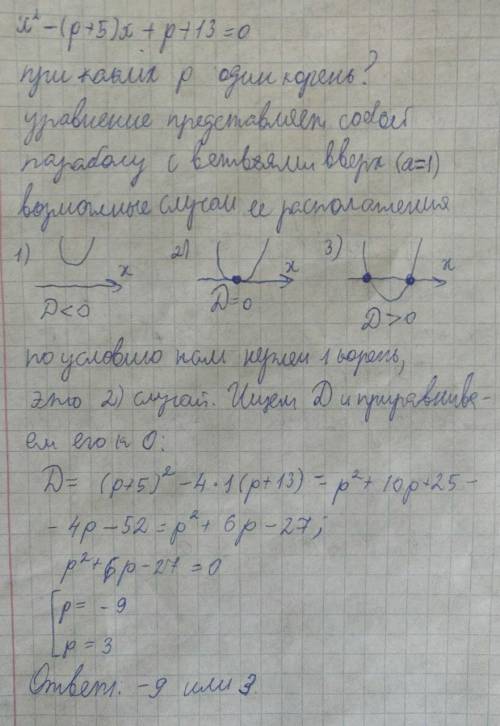 x² - (p+5)x + p + 13 = 0
при каких p один корень?
уравнение представляет собой
параболу с ветвями вверх (a=1)
возможные случаи ее расположения
1) x 2) x 3) x
D<0 D=0 D>0
по условию нам нужен 1 корень,
это 2) случай. Ищем D и приравнива-
ем его к 0:
D = (p+5)² - 4·1(p+13) = p² + 10p + 25 -
- 4p - 52 = p² + 6p - 27;
p² + 6p - 27 = 0
[p = -9
[p = 3
Ответ: -9 или 3